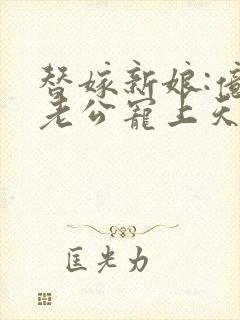 替嫁新娘:億
老公寵上天
匡光力